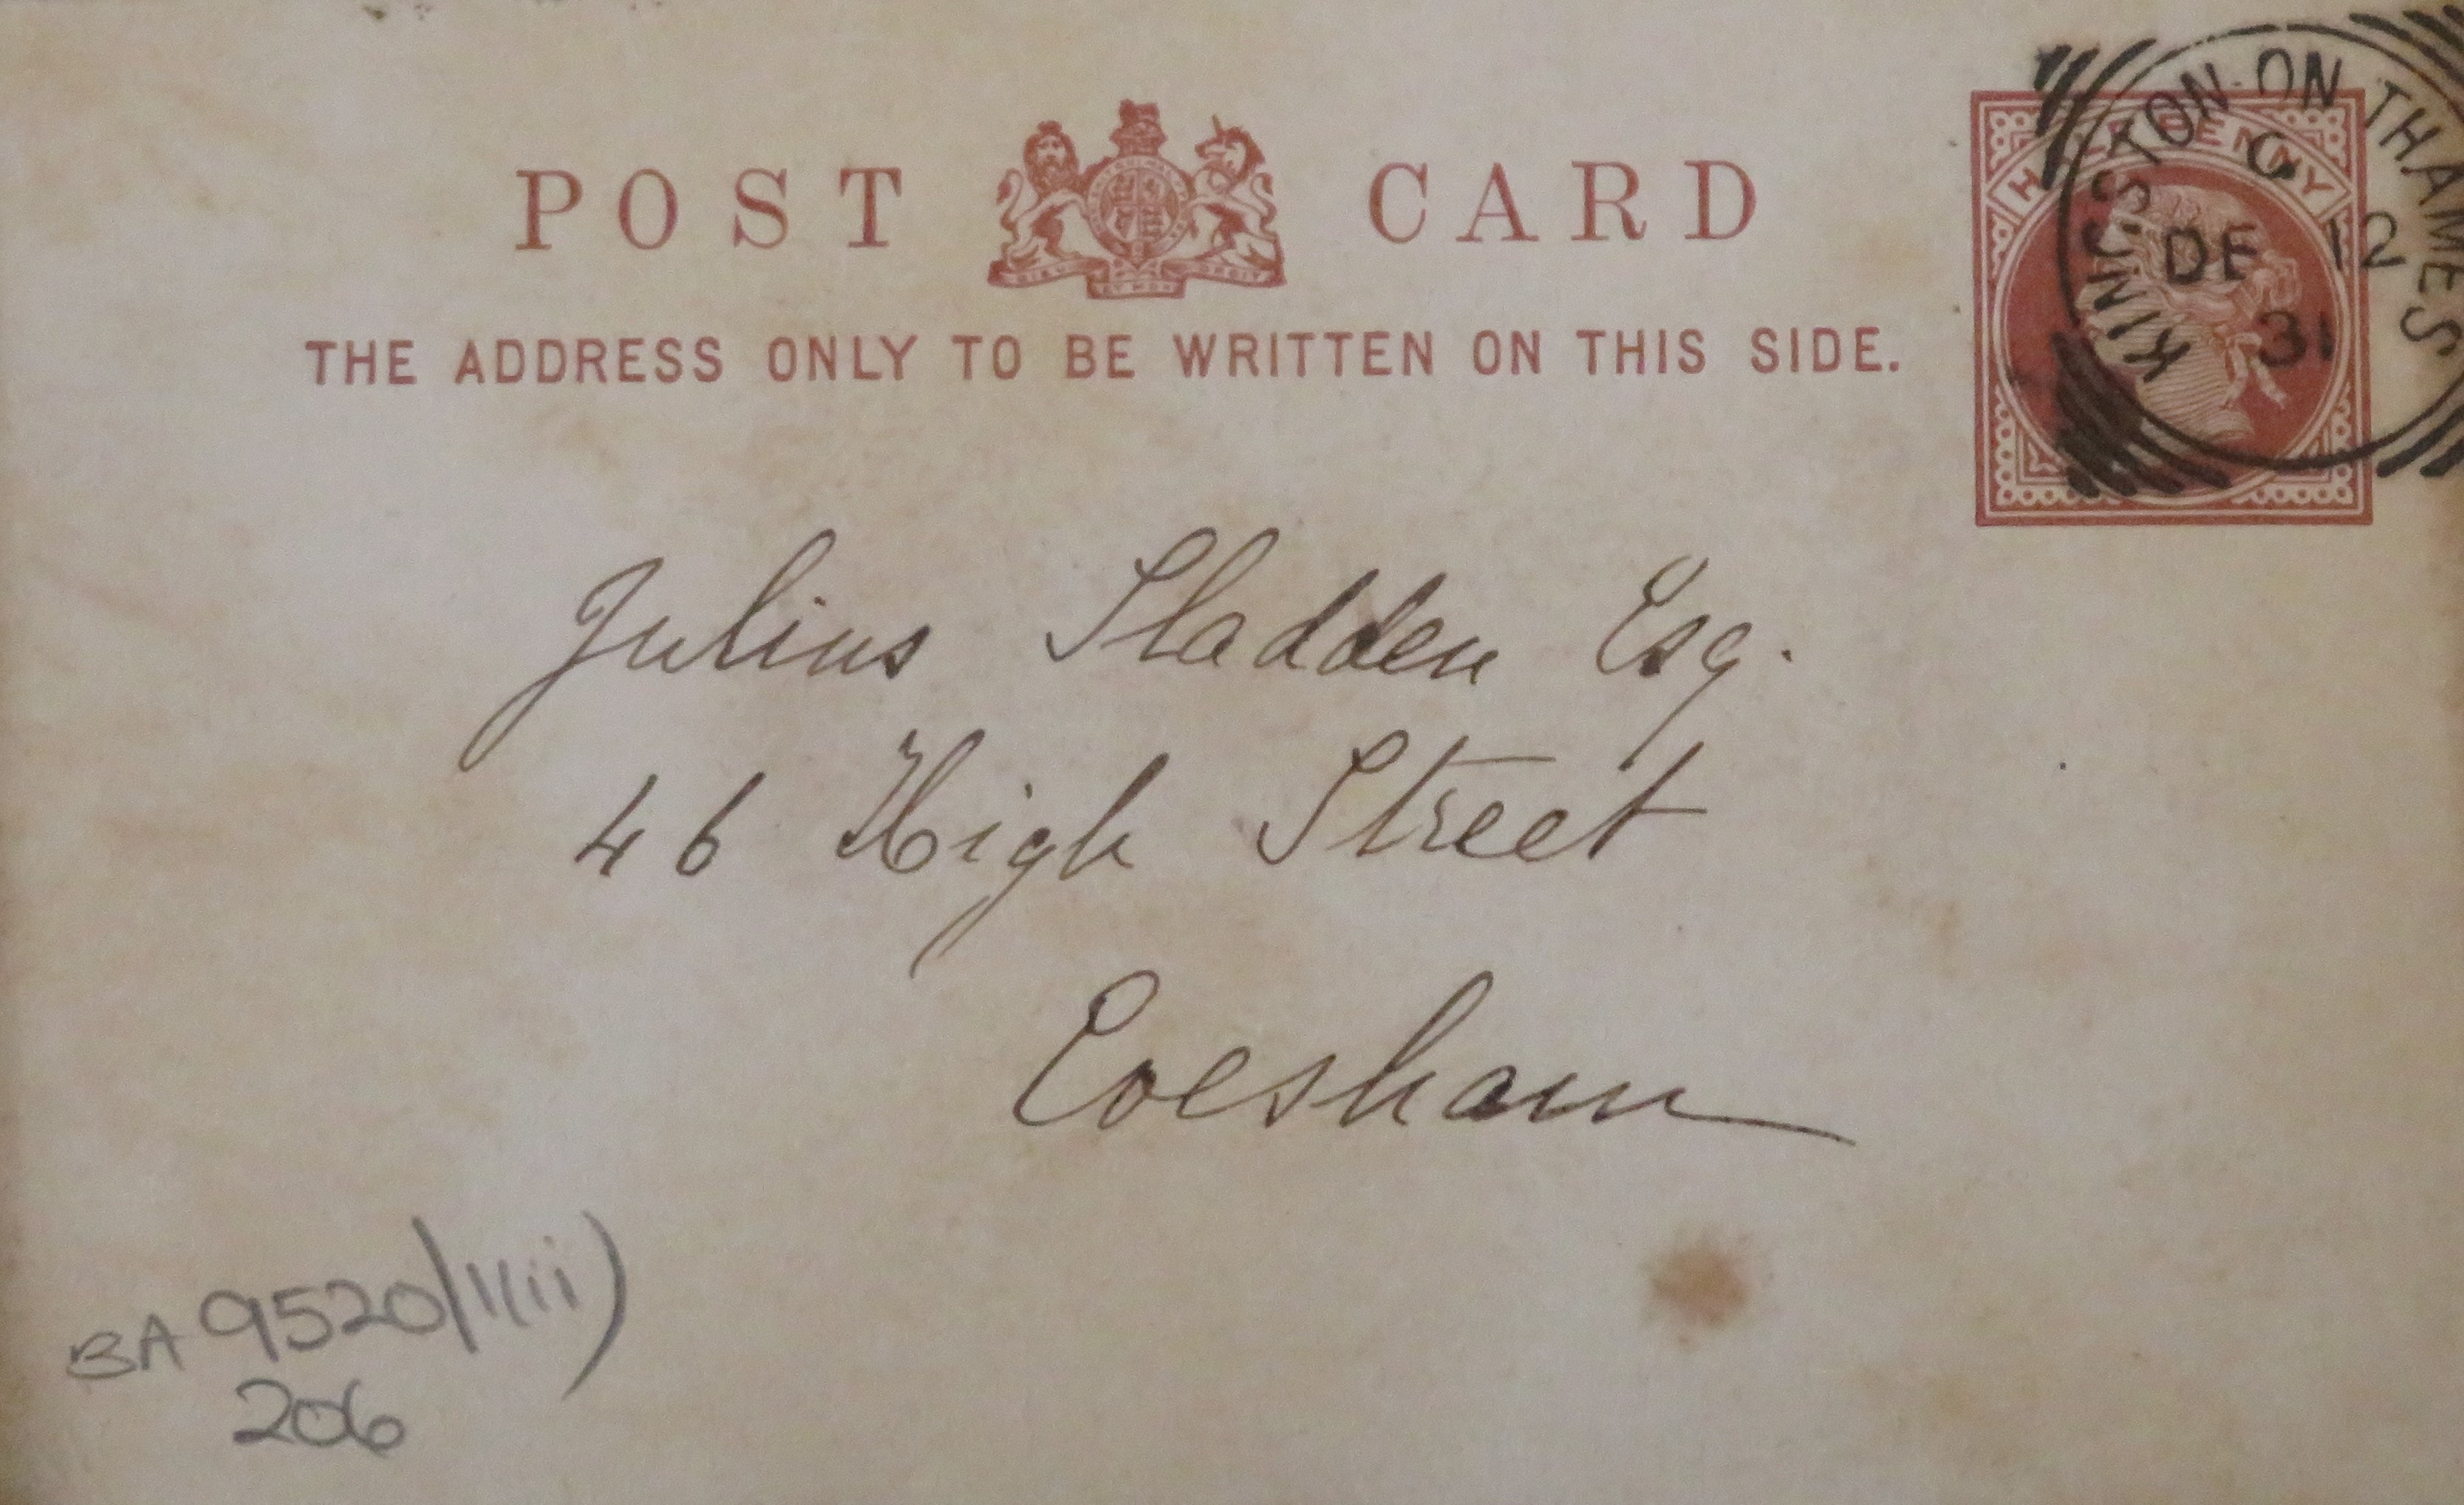 POST CARD
THE ADDRESS ONLY TO BE WRITTEN ON THIS SIDE.
HALFPENNY
KINGSTON-ON THAMES
DE 12
31
Julius Sladden Esq.
46 High Street
Evesham
BA 9520/1(ii)
206